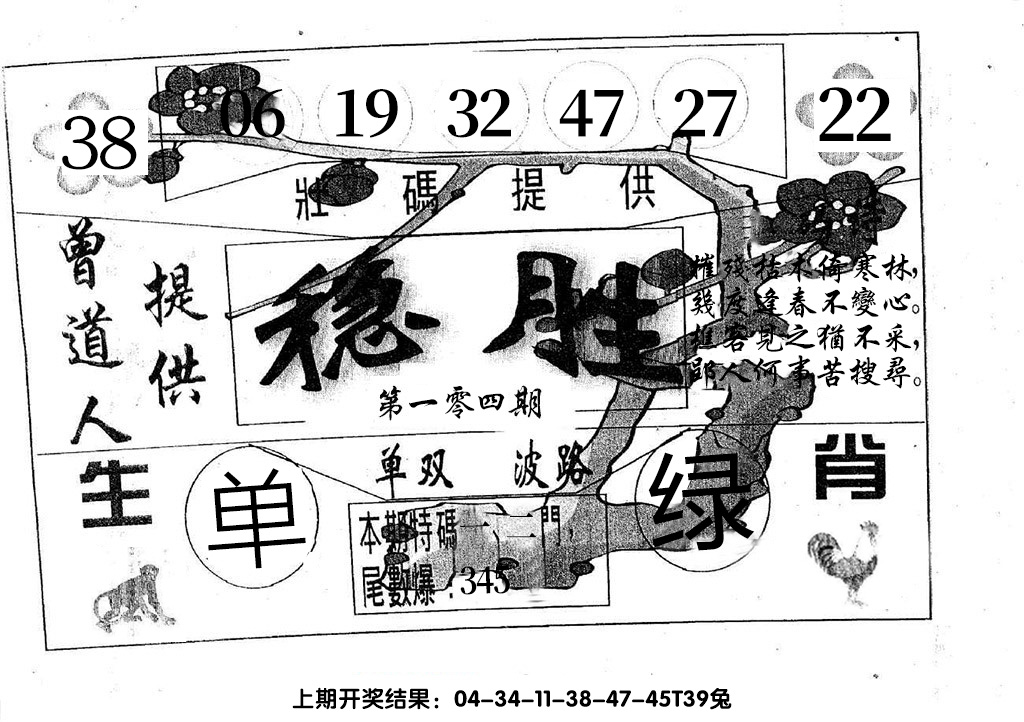 38
06 19 32 47 27
22
壯碼提供
曾道人
提供
稳胜
第一零四期
特
摧殘枯木倚寒林，
幾度逢春不變心。
樵客見之猶不采，
郢人何事苦搜尋。
单双 波路
生肖
单
绿
本期特碼一、二門，
尾數爆：345
上期开奖结果：04-34-11-38-47-45T39兔